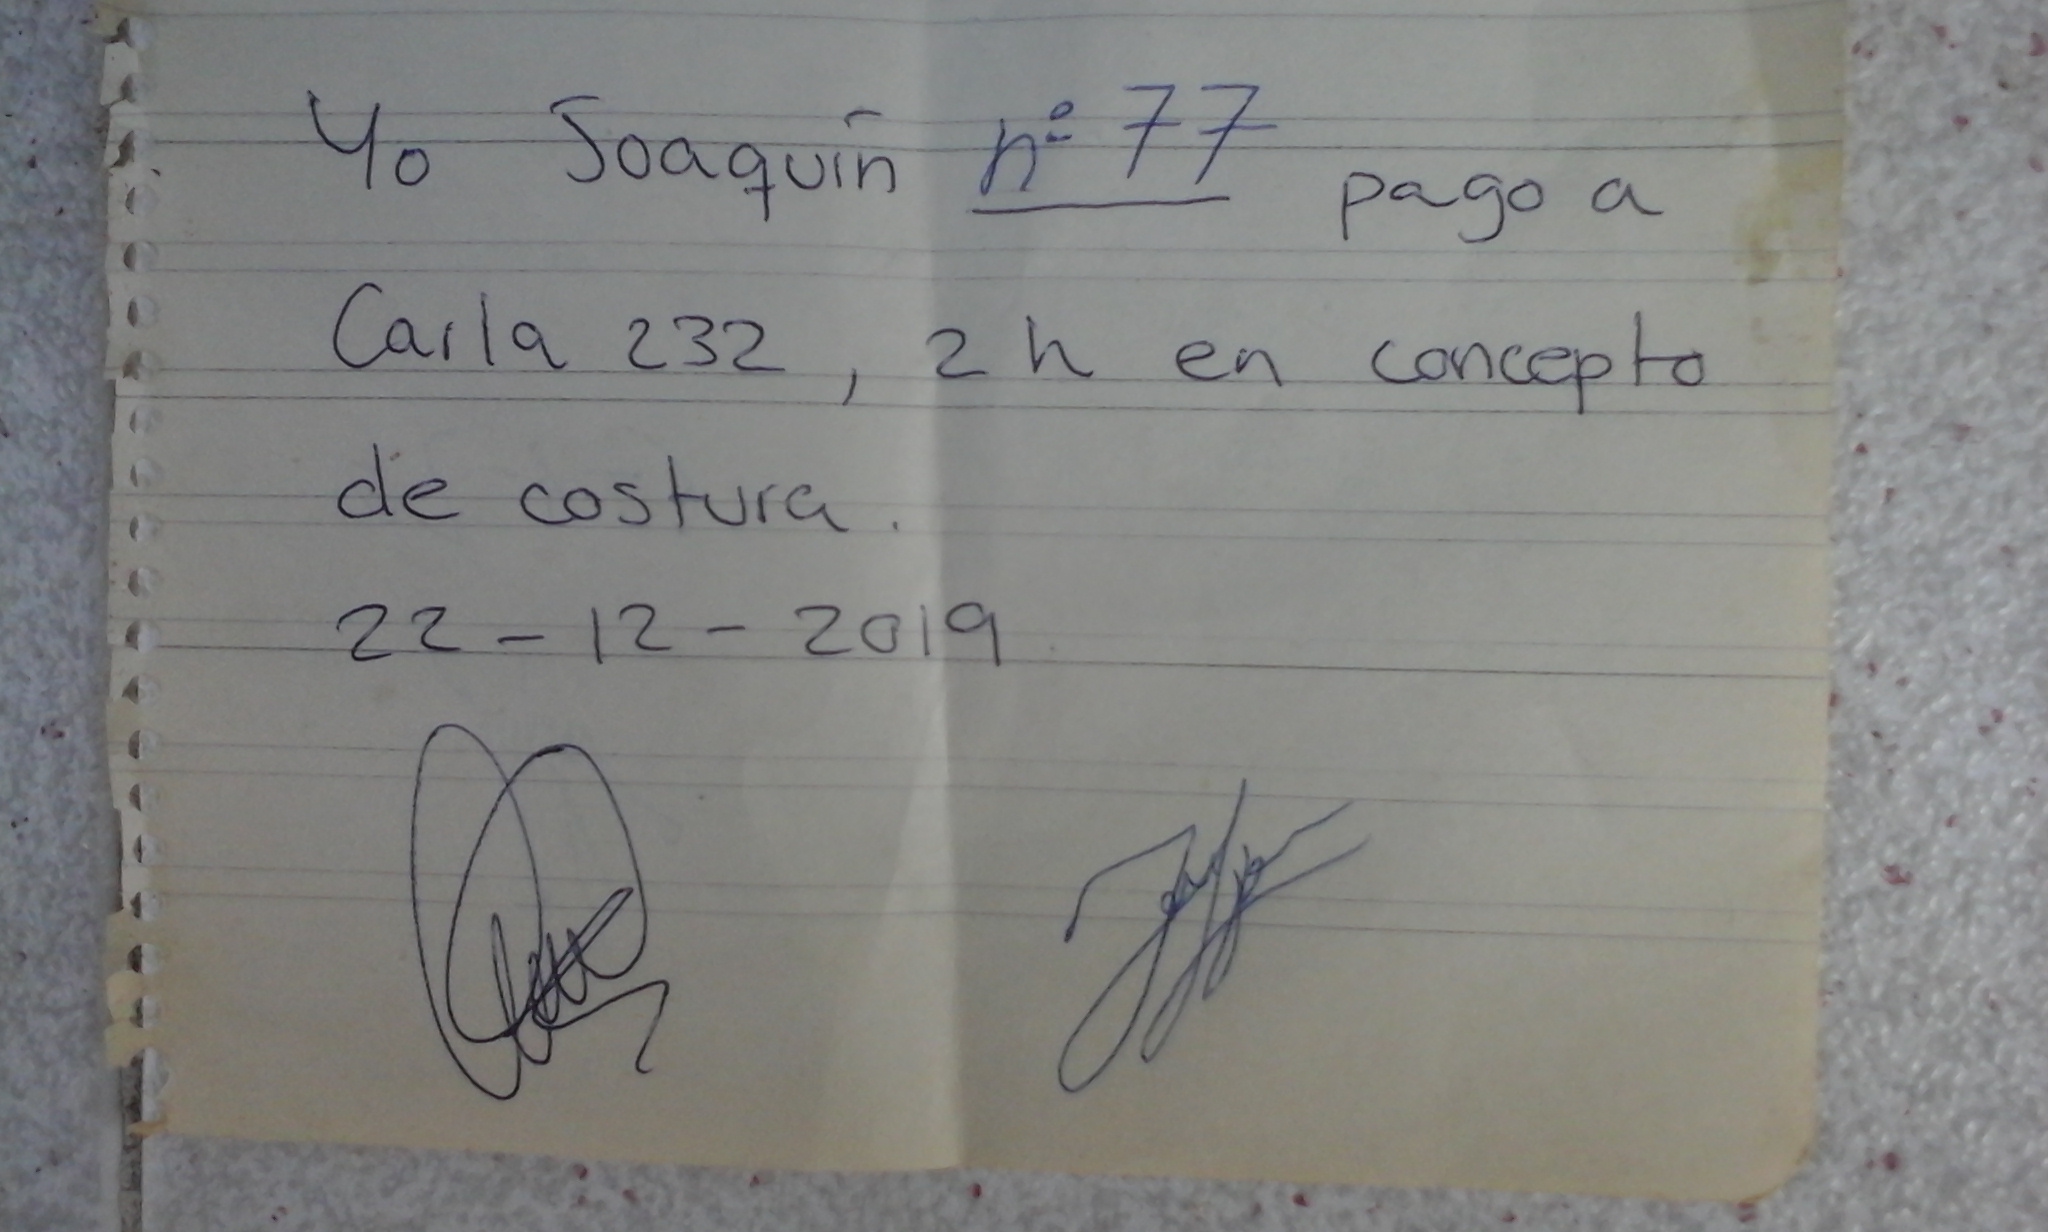 Yo Joaquín nº 77 pago a
Carla 232, 2 h en concepto
de costura.
22-12-2019